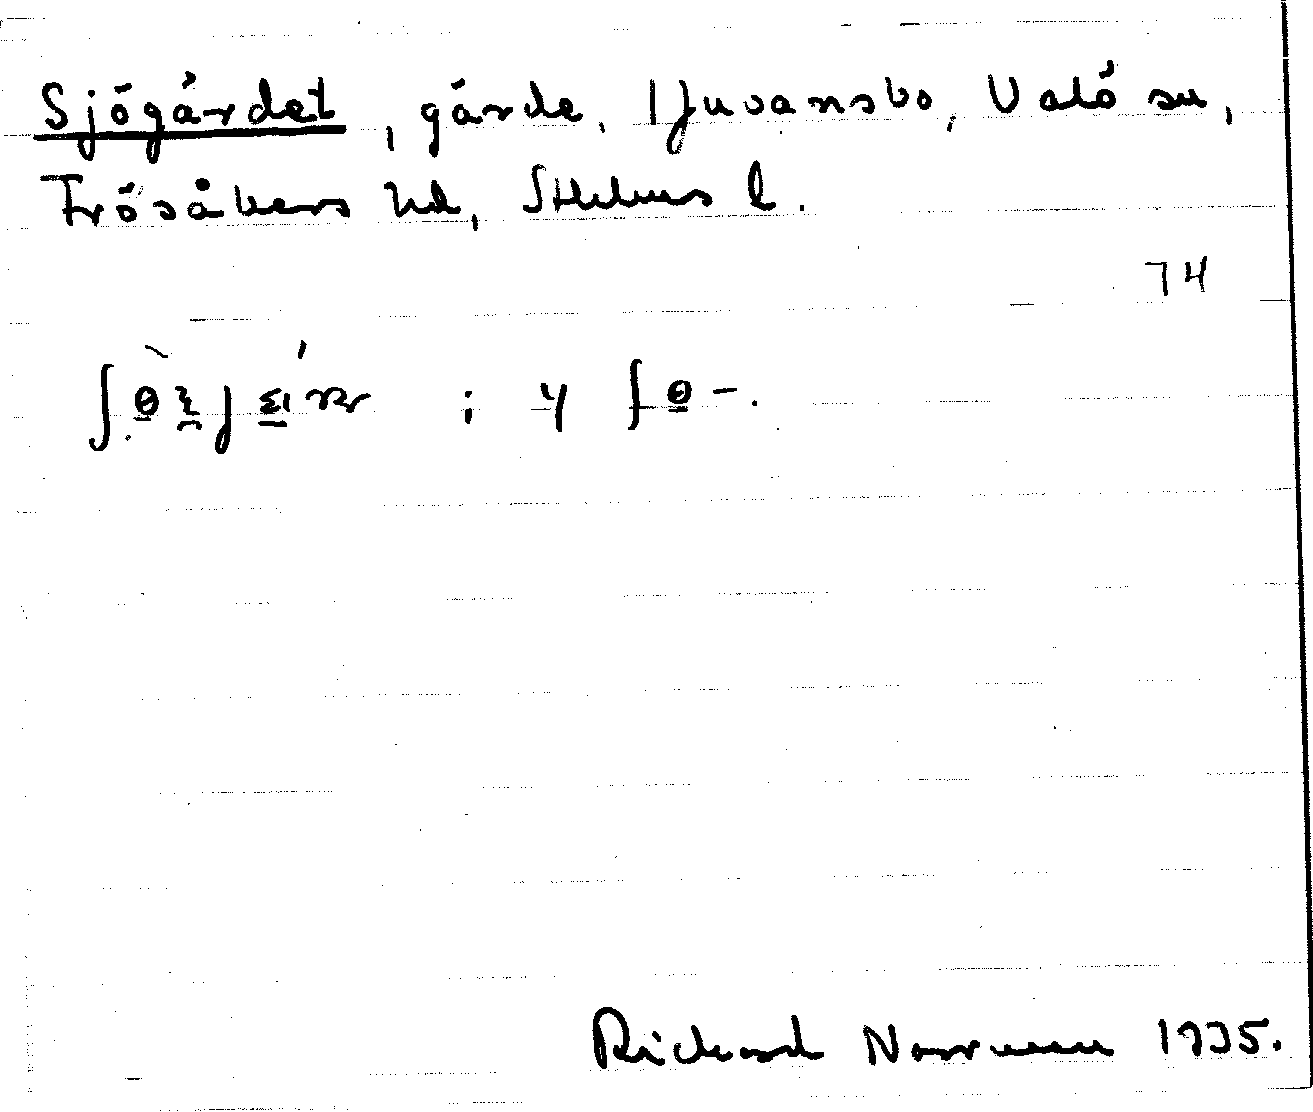 Sjögärdet, gärde, Ljuvansbo, Valö sn,
Frösåkers hd, Sthlms l.
74
Richard Norrman 1935.